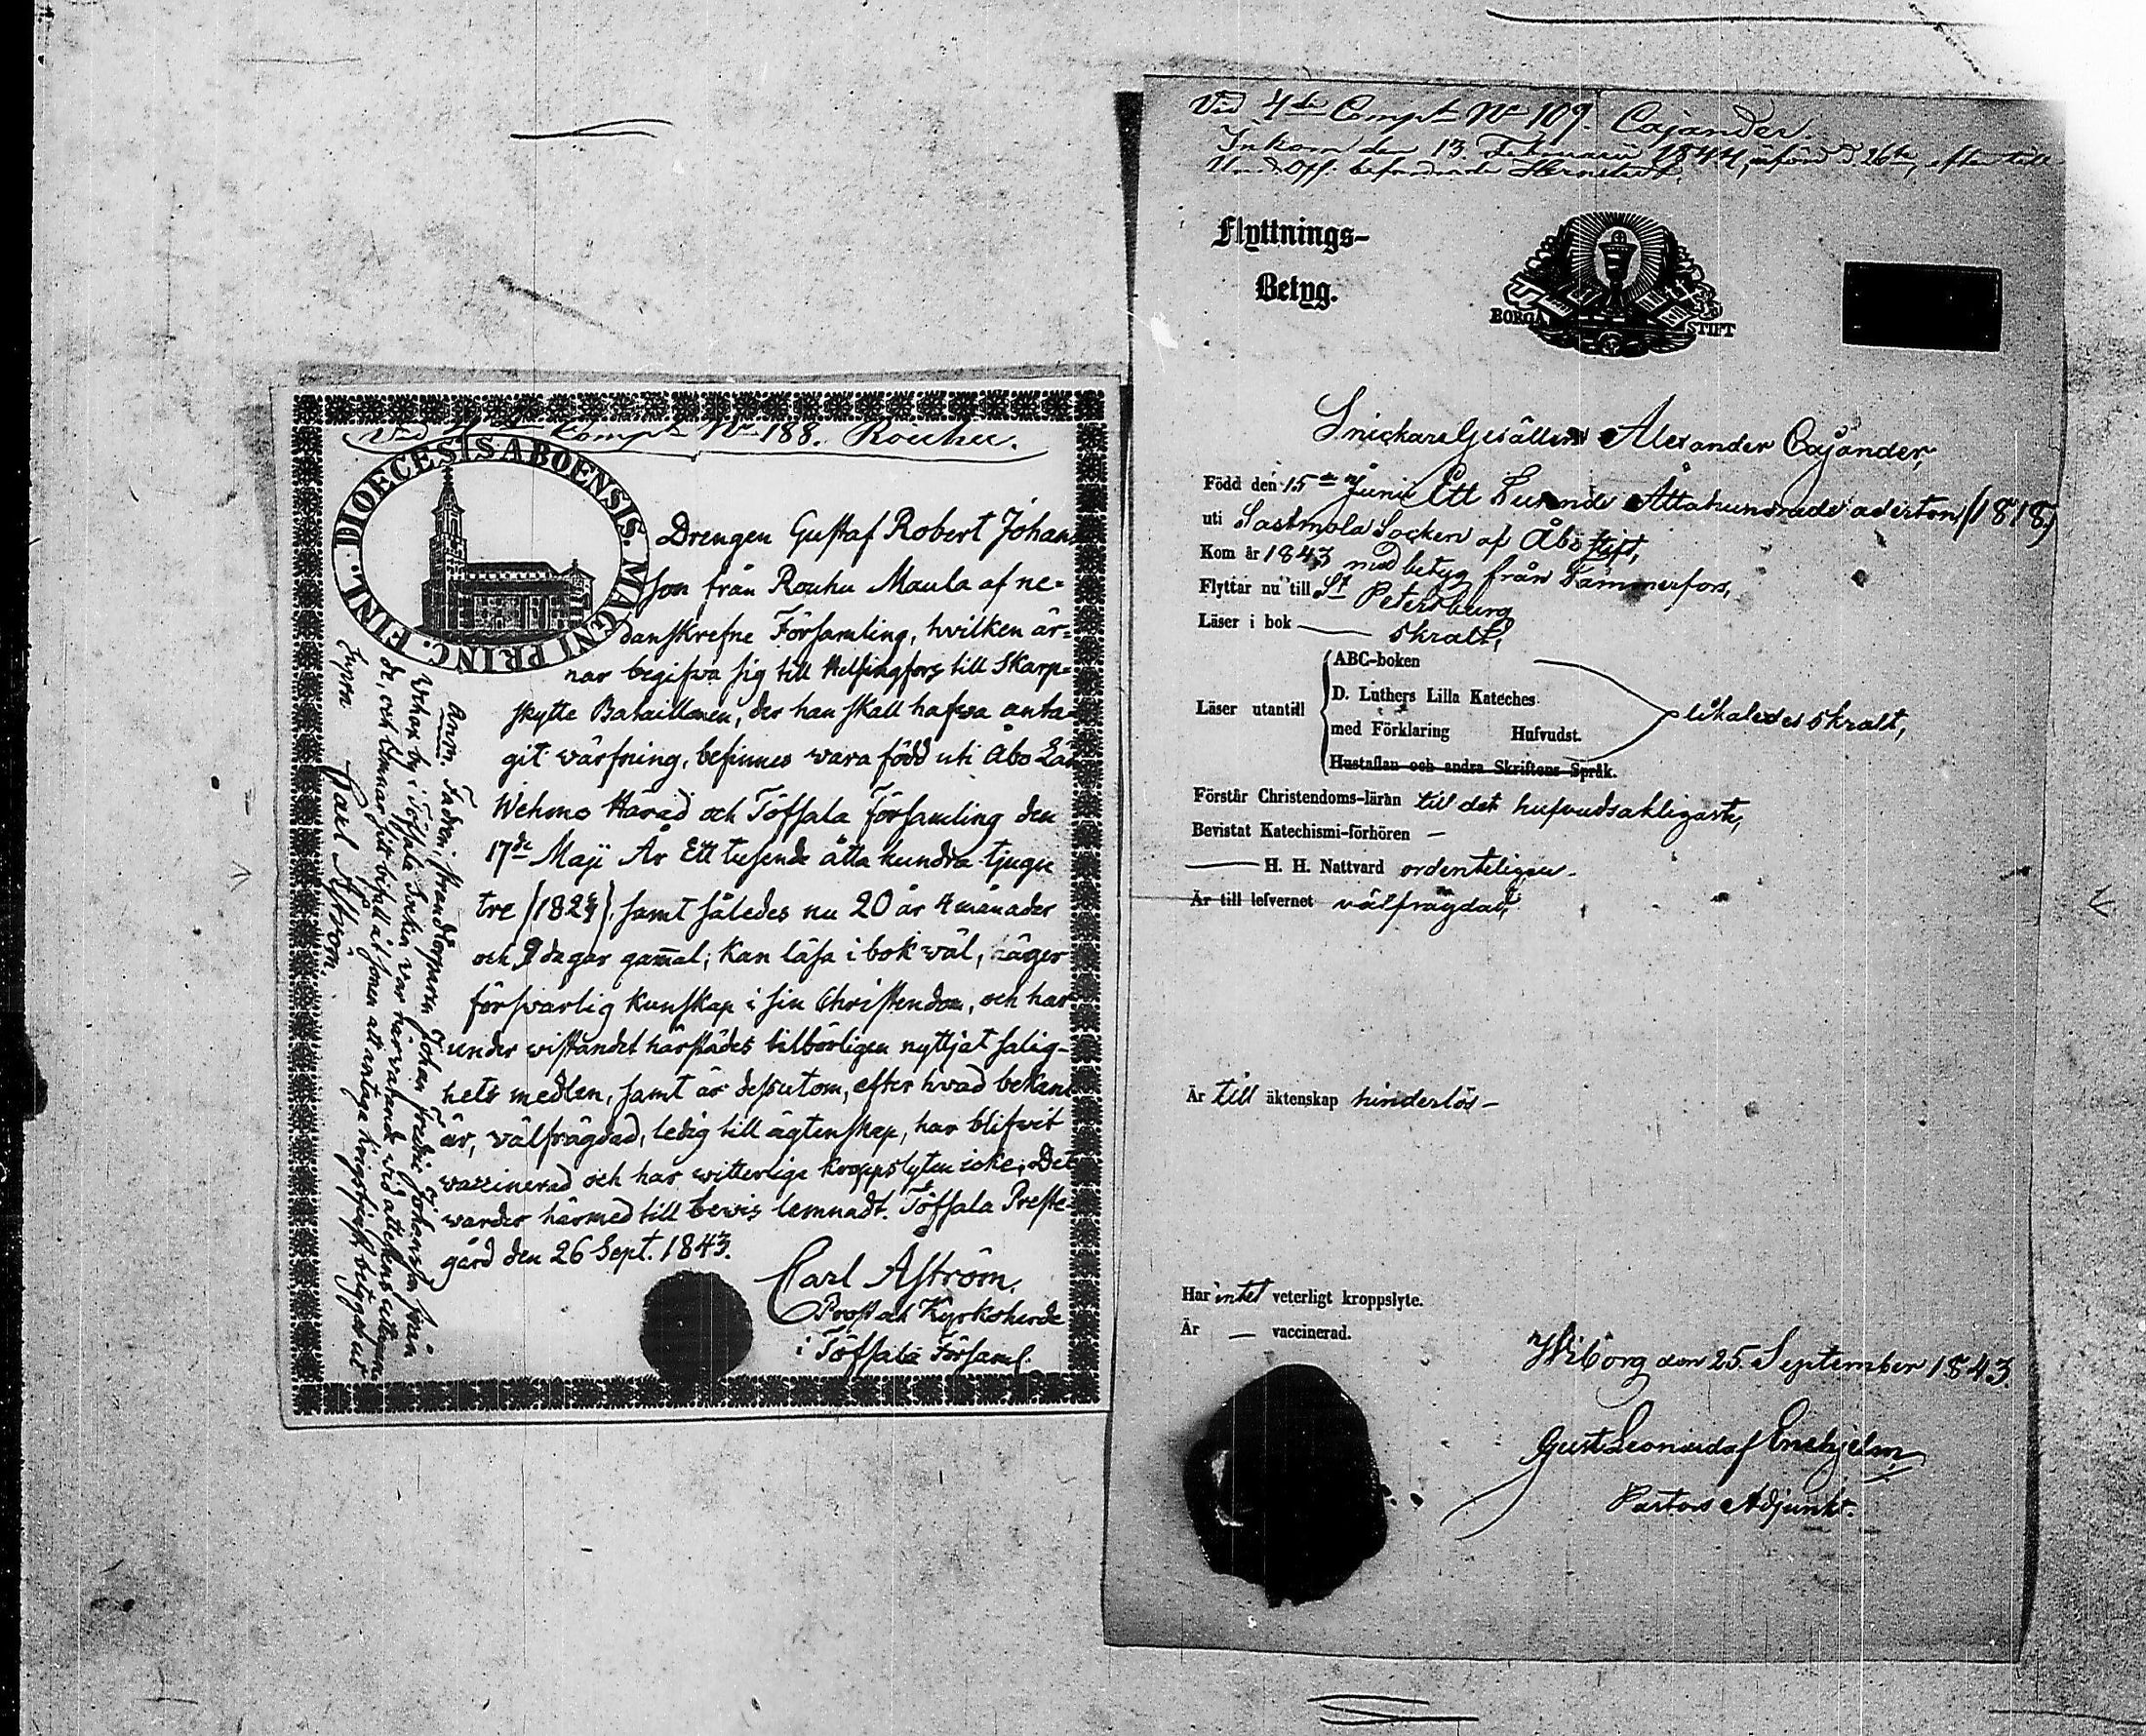 Vid Comp. No 188. Rouhu.
DIOECESIS ABOENSIS. MAGNI PRINC. FINL.
Drengen Gustaf Robert Johans
son från Rouhu Maula af ne=
danskrefne Församling, hvilken är=
nar begifva sig till Helsingfors till Skarp=
skytte Bataillonen, der han skall hafva anta=
git värfning, befinnes vara född uti Åbo Län
Wehmo Härad och Töfsala Församling den
17de Maji År Ett tusende åtta hundra tjugu
tre /1823/, samt således nu 20 år 4 månader
och 9 dagar gammal; kan läsa i bok väl, äger
försvarlig kunskap i sin Christendom, och har
under vistandet härstädes tillbörligen nyttjat salig-
hets medlen, samt är dessutom, efter hvad bekant
är, välfrägdad, ledig till ägtenskap, har blifvit
vaccinerad och har witterliga kroppslyten icke; Det
warder härmed till bevis lemnadt. Töfsala Preste-
gård den 26 Sept. 1843.
Carl Aström.
Prost och Kyrkoherde
i Töfsala Församl.
Anm. Fadren, Johan Johansson från
by i Töfsala Socken var närvarande vid attestens
de, och lemnar sitt bifall åt sonen att antaga Krigstjenst, betygar ut
supra
Carl Aström.
Vid 4de Compt No 109. Cajander.
Inkom den 13. Februarii 1844, införd d 26te, efter
Und. Off.
Flyttnings-
Betyg.
BORGÅ STIFT
Snickare Gesällen Alexander Cajander,
Född den 15de Junii Ett Tusende Åttahundrade aderton /1818/
uti Sastmola Socken af Åbo Stift,
Kom år 1843 med betyg från Tammerfors,
Flyttar nu till St Petersburg
Läser i bok — skralt,
Läser utantill
ABC-boken
D. Luthers Lilla Kateches
med Förklaring Hufvudst.
Hustaflan och andra Skriftens Språk.
likaledes skralt,
Förstår Christendoms-läran till det hufvudsakligaste,
Bevistat Katechismi-förhören —
— H. H. Nattvard ordenteligen.
Är till lefvernet välfrägdad,
Är till äktenskap hinderlös –
Har intet veterligt kroppslyte.
Är — vaccinerad.
Wiborg den 25. September 1843.
Gust. Leonard af Enehjelm
Pastors Adjunkt.